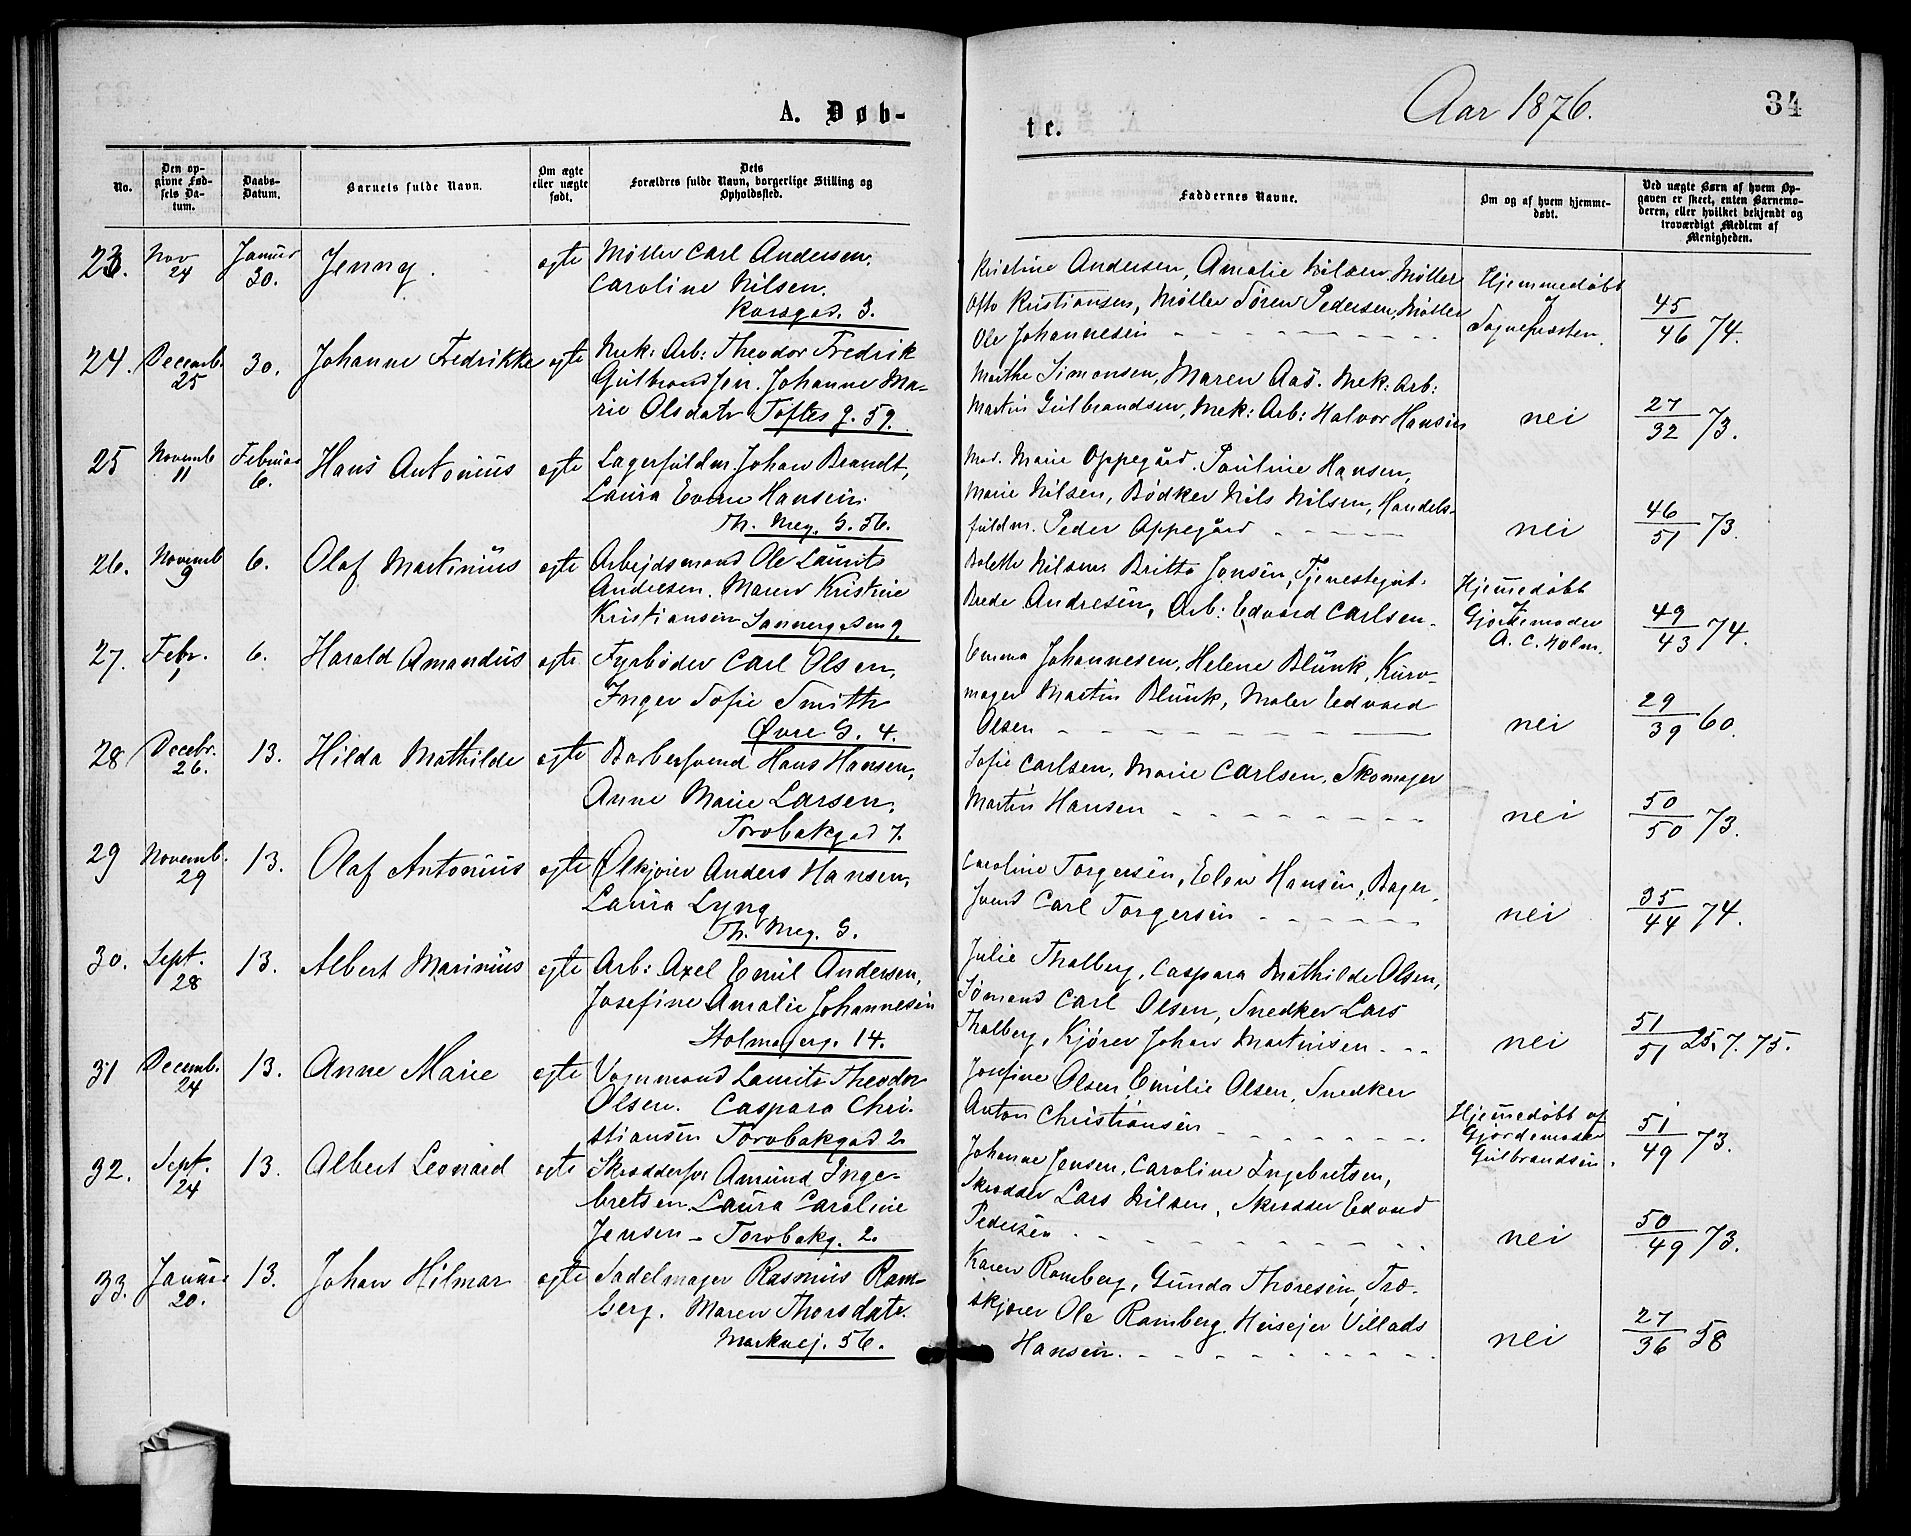 A. Døb-
te.
Aar 1876.
34
No.
Den op-
givne Fød-
sels Da-
tum.
Daabs-
Datum.
Barnets fulde Navn.
Om ægte
eller uægte
født.
Dets
Forældres fulde Navn, borgerlige Stilling og
Opholdssted.
Faddernes Navne.
Om og af hvem hjemme-
døbt.
Ved uægte Børn af hvem Op-
gaven er skeet, enten Barnemo-
deren, eller hvilket bekjendt og
troværdigt Medlem af
Menigheden.
23. Nov 24 Januar 30. Jenny. egte Møller Carl Andersen.
Caroline Nilsen.
Korsgad. 3.
Kristine Andersen, Amalie Nilsen, Møller
Otto Kristiansen, Møller Søren Pedersen, Møller
Ole Johannesen
Hjemmedøbt
af
Sognepresten.
45/46 74.
24. Decemb. 25 30. Johanne Fredrikke egte Mek: Arb: Theodor Fredrik
Gulbrandsen. Johanne Ma-
rie Olsdatr Toftes g. 59.
Marthe Simonsen, Maren Aas. Mek: Arb:
Martin Gulbrandsen, Mek: Arb: Halvor Hansen
nei
27/32 73.
25 Novemb 11 Februar 6. Hans Antonius egte Lagerfuldm. Johan Brandt,
Laura Evine Hansen.
Th. Mey. G. 56.
Mad. Marie Oppegård. Pauline Hansen,
Marie Nilsen, Bødker Nils Nilsen, Handels-
fuldm. Peder Oppegård
nei
46/51 73.
26. Novemb 9 6. Olaf Martinius egte Arbejdsmand Ole Laurits
Andresen. Maren Kristine
Kristiansen Sannergaden 9
Bolette Nilsen. Britta Jonsen, Tjenestegut
Brede Andresen, Arb: Edvard Carlsen.
Hjemmedøbt
af
Gjordemoder
A. C. Holm.
49/43 74.
27. Febr. 1 6. Harald Amandus egte Fyrbøder Carl Olsen,
Inger Sofie Smith
Øvre G. 4.
Emma Johannesen, Helene Blunk, Kurv-
mager Martin Blunk, Maler Edvard
Olsen
nei
29/39 60.
28 Decebr. 26. 13. Hilda Mathilde egte Barbersvend Hans Hansen,
Anne Marie Larsen,
Torvbakgad 7.
Sofie Carlsen, Marie Carlsen, Skomager
Martin Hansen
nei
50/50 73.
29 Novemb. 29 13. Olaf Antonius egte Ølkjører Anders Hansen,
Laura Lyng
Th. Mey. G.
Caroline Torgersen, Elen Hansen, Bager-
svend Carl Torgersen
nei
35/44 74.
30. Sept. 28 13. Albert Marinius egte Arb: Axel Emil Andersen,
Josefine Amalie Johannesen
Stolmagerg. 14.
Julie Thalberg, Caspara Mathilde Olsen,
Sømand Carl Olsen, Snedker Lars
Thalberg, Kjører Johan Martinsen
nei
51/51 25. 7. 75.
31 Decemb. 24 13. Anne Marie egte Vognmand Laurits Theodor
Olsen. Caspara Chri-
stiansen Torvbakgad 2
Josefine Olsen, Emilie Olsen, Snedker
Anton Christiansen
Hjemmedøbt af
Gjordemoder
Gulbrandsen.
51/49 73.
32. Sept. 24 13. Albert Leonard egte Skrædder Amund Inge-
bretsen. Laura Caroline
Jensen - Torvbakg. 2.
Johanne Jensen, Caroline Ingebretsen,
Skrædder Lars Nilsen, Skrædder Edvard
Pedersen
nei
50/49 73.
33. Januar 20. 13. Johan Hilmar egte Sadelmager Rasmus Ram-
berg. Maren Thorsdatr.
Markvej. 56.
Karen Ramberg, Gunda Thoresen, Træ-
skjører Ole Ramberg, Huseier Villads
Hansen.
nei
27/36 58